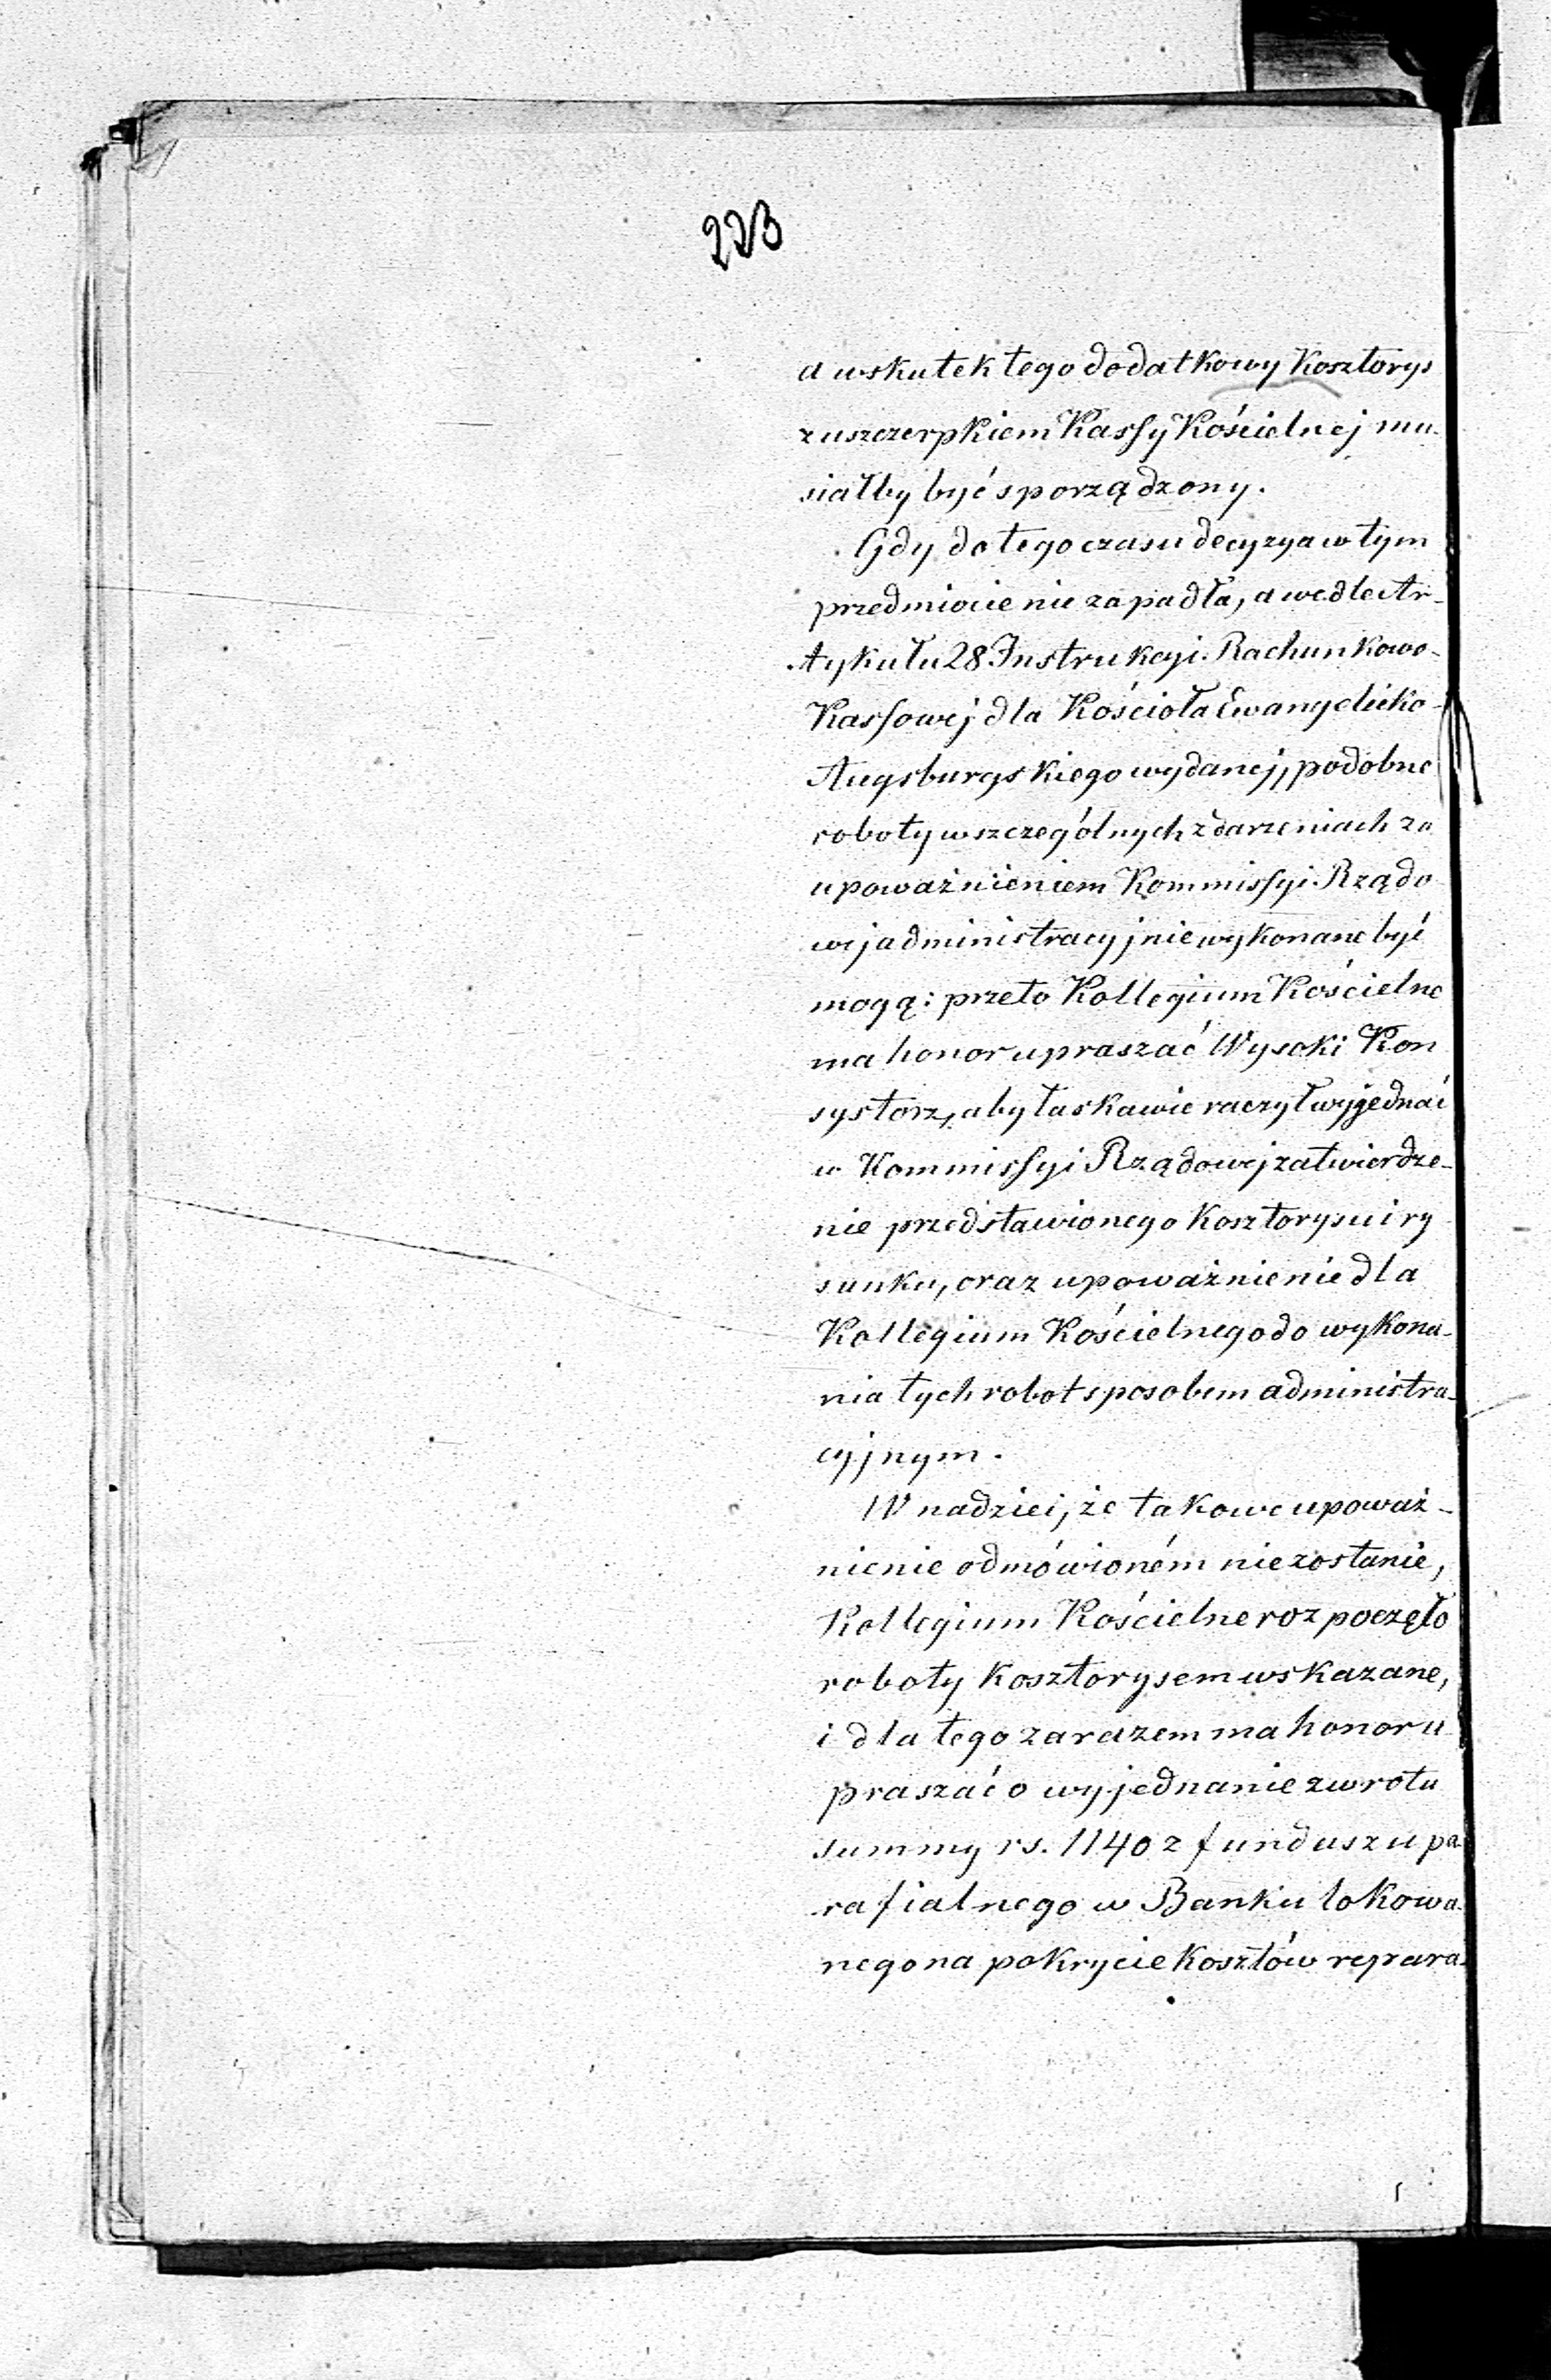 223
a wskutek tego dodatkowy Kosztorys
z uszczerpkiem Kassy Kościelnej mu-
siałby być sporządzony.
Gdy do tego czasu decyzya w tym
przedmiocie nie zapadła, a wedle Ar-
tykułu 28 Instrukcyi Rachunkowo-
Kassowej dla Kościoła Ewangelicko-
Augsburgskiego wydanej, podobne
roboty w szczególnych zdarzeniach za
upoważnieniem Kommissyi Rządo
wej administracyjnie wykonane być
mogą: przeto Kollegium Kościelne
ma honor upraszać Wysoki Kon
systorz, aby łaskawie raczył wyjednać
w Kommissyi Rządowej zatwierdze-
nie przedstawionego Kosztorysu i ry
sunku, oraz upoważnienie dla
Kollegium Kościelnego do wykona-
nia tych robot sposobem administra-
cyjnym.
W nadziei, że takowe upoważ-
nienie odmówioném nie zostanie,
Kollegium Kościelne rozpoczęło
roboty Kosztorysem wskazane,
i dla tego zarazem ma honor u
praszać o wyjednanie zwrotu
summy rs. 1140 z funduszu pa
rafialnego w Banku lokowa-
nego na pokrycie Kosztów repara-